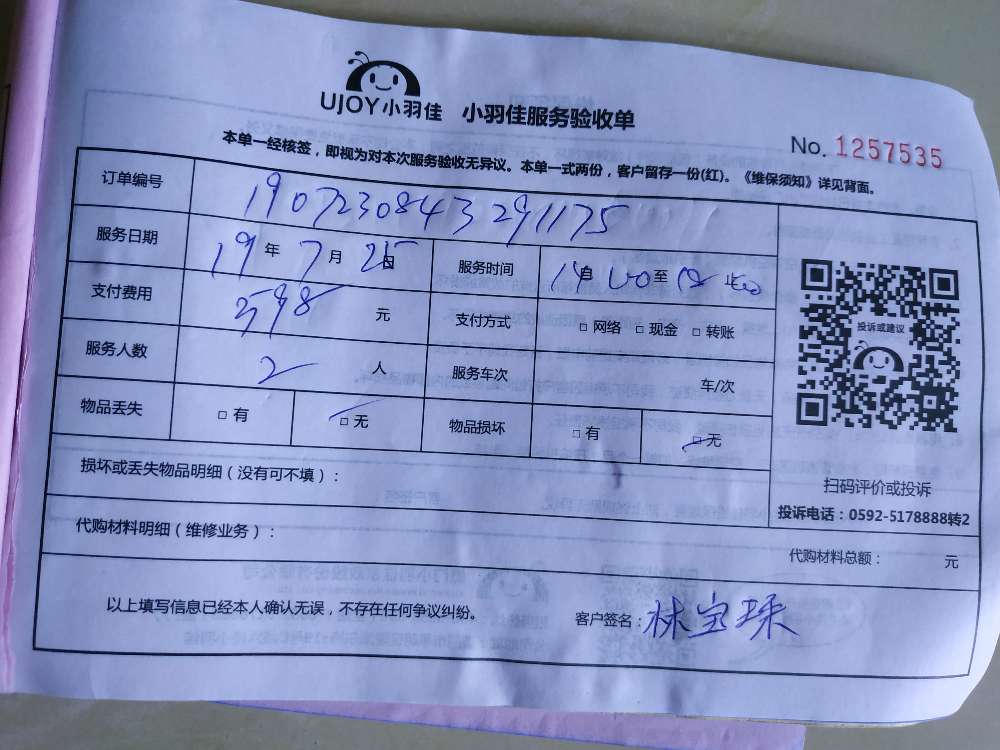 UJOY小羽佳 小羽佳服务验收单
No. 1257535
本单一经核签，即视为对本次服务验收无异议。本单一式两份，客户留存一份(红)。《维保须知》详见背面。
订单编号 1907230843291175
服务日期 19年7月25日 服务时间 14 自 00至
支付费用 398 元 支付方式 □ 网络 □ 现金 □ 转账
服务人数 2 人 服务车次 车/次
物品丢失 □ 有 □ 无 物品损坏 □ 有 □ 无
损坏或丢失物品明细（没有可不填）：
代购材料明细（维修业务）：
代购材料总额： 元
以上填写信息已经本人确认无误，不存在任何争议纠纷。 客户签名：林宝珠
投诉或建议
扫码评价或投诉
投诉电话：0592-5178888转2